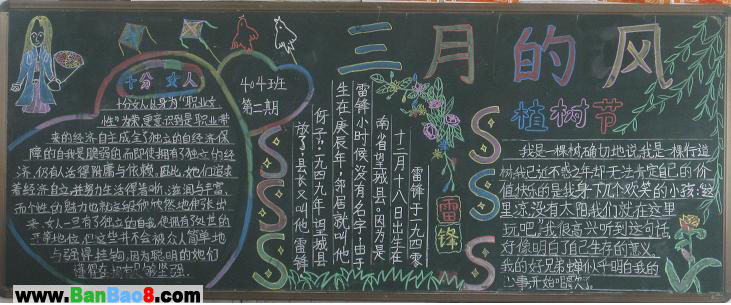 三月的风
404班
第二期
十分女人
十分女人身为"职业女
性"为荣更意识到是职业带
来的经济自主成全了独立的自我经济保
障的自我是脆弱的而即使拥有独立的经
济,仍有人活得附属与依赖,因此,她们追求
着经济自立,并努力生活得清晰、滋润与丰富,
而个性的魅力也就这般欣欣然地伸张出
来,女人一旦有了独立的自我便拥有
平等地位,但这些并不会被众人简单地
与强悍挂钩,因为聪明的她们
懂得
雷锋
雷锋于一九四零
十二月十八日出生在
南省望城县。因为是
雷锋小时候没有名字,由于
生在庚辰年,邻居就叫他
伢子。一九四九年
放了,县长又叫他"雷锋
植树节
我是一棵树确切地说,我是一棵行道
树,我已近不惑之年却无法肯定自己的价
值快乐的是我身下几个欢笑的小孩:"这
里凉,没有太阳我们就在这里
玩吧。"我很高兴听到这句话,
好像明白了自己生存的意义
我的好兄弟蝉似乎明白我的
心事开始唱
www.BanBao8.com